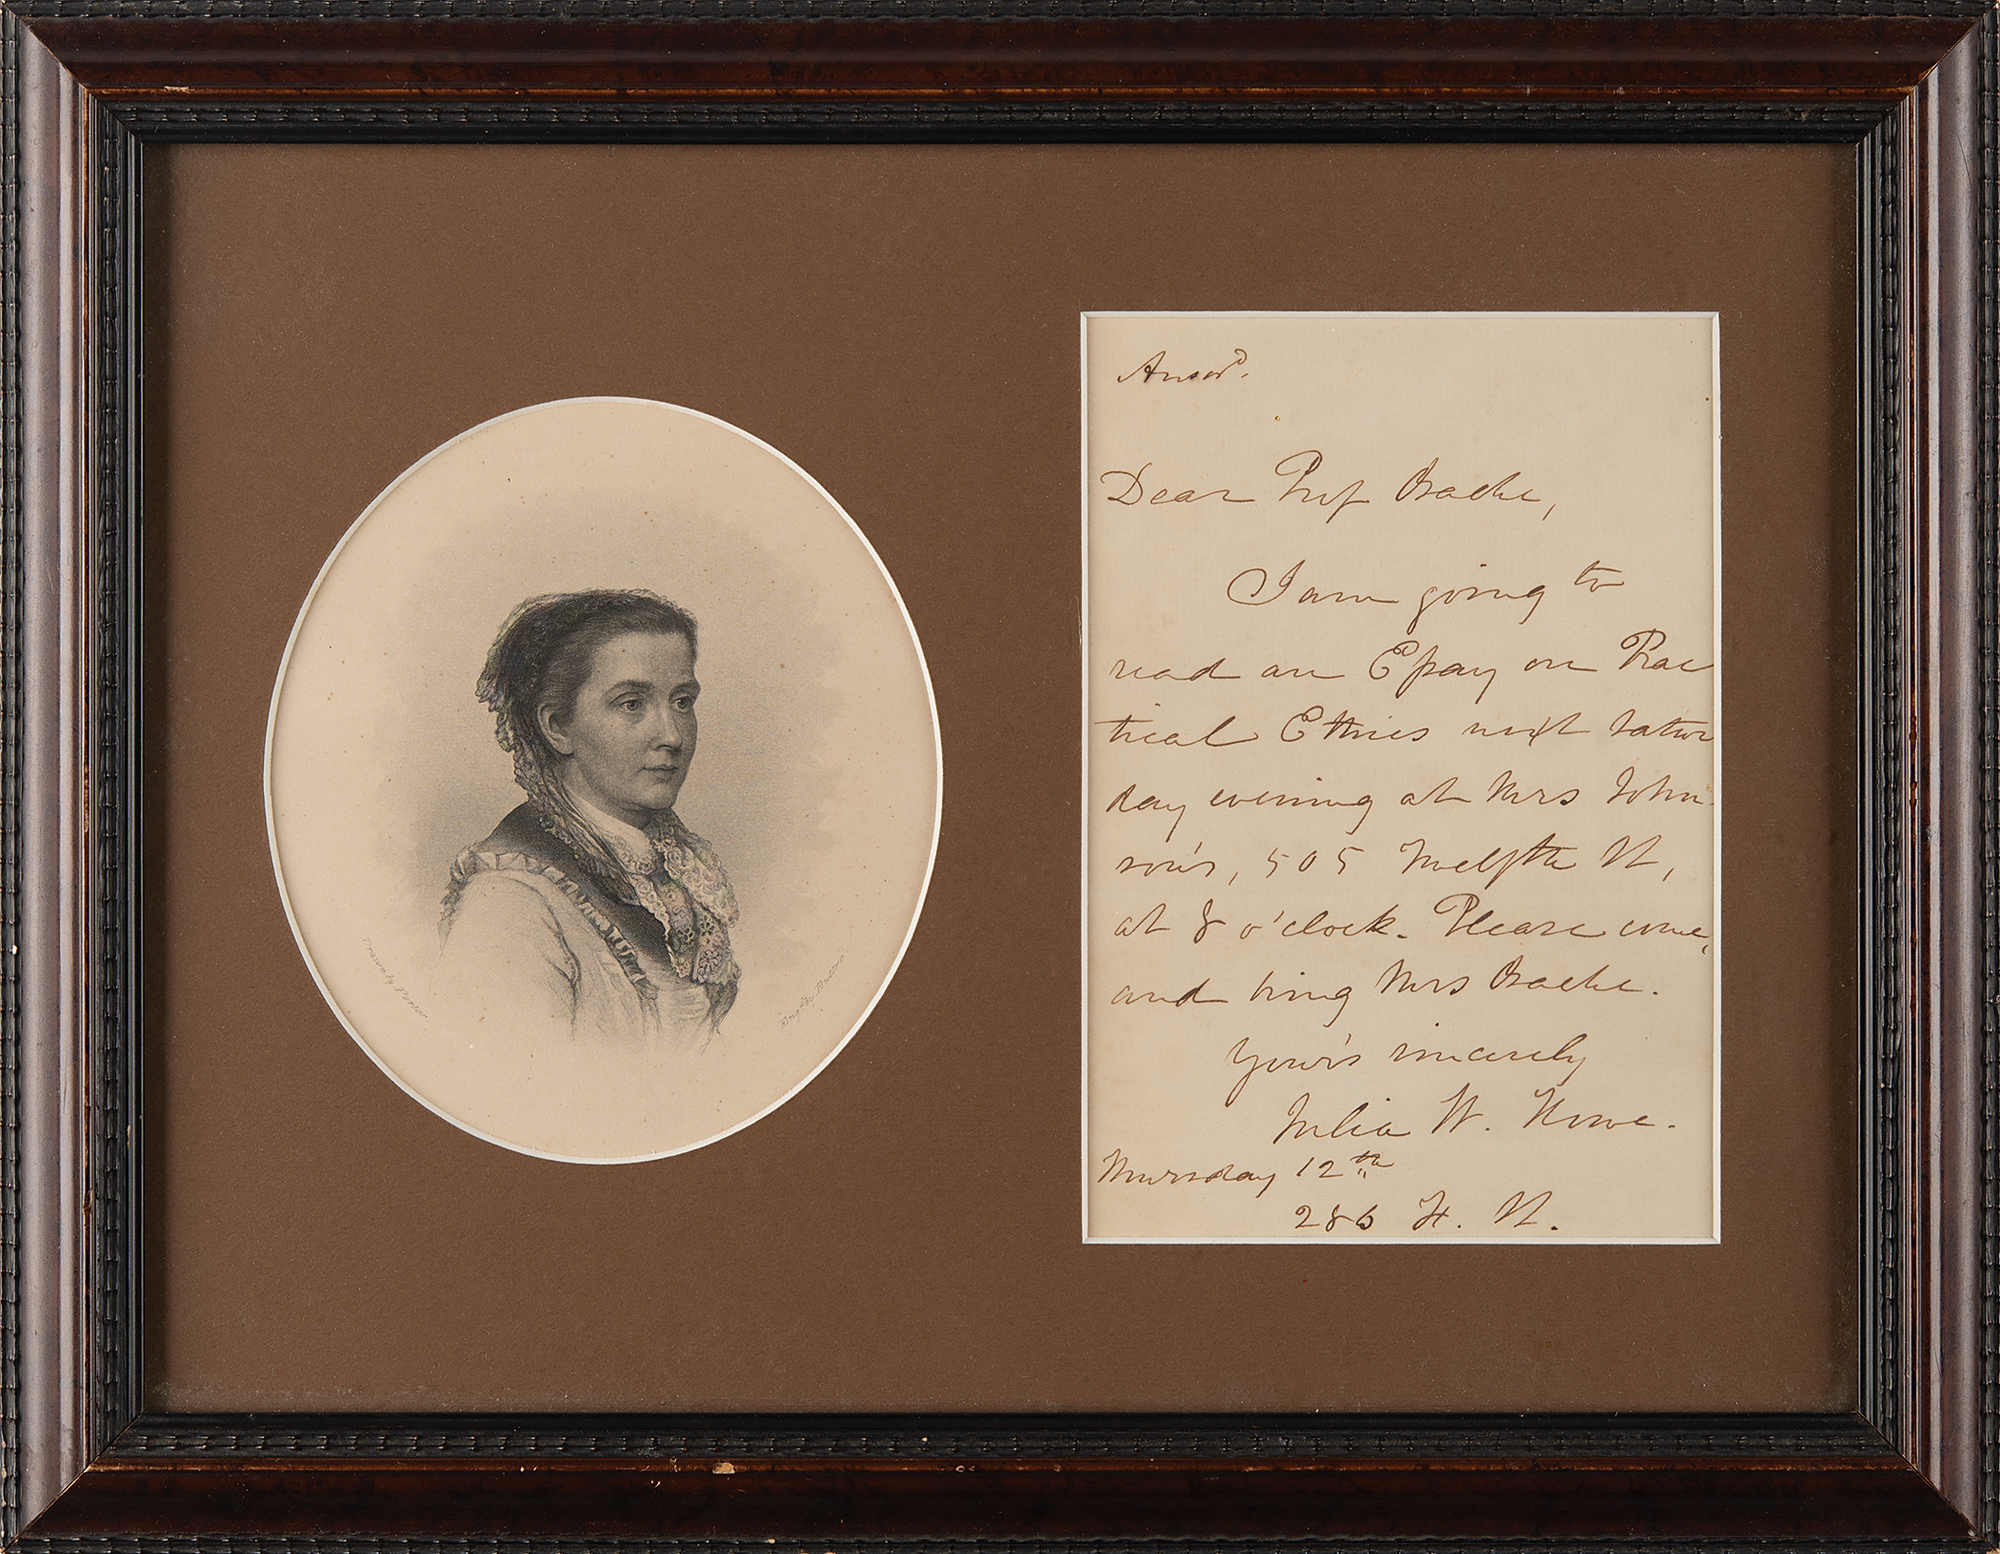 Drawn by
Answd.
Dear Prof Bache,
I am going to
read an Essay on Prac
tical Ethics next Satur
day evening at Mrs John-
son's, 505 Twelfth St,
at 8 o'clock. Please come,
and bring Mrs Bache.
Your's sincerely
Julia W. Howe.
Thursday 12th
286 H. St.